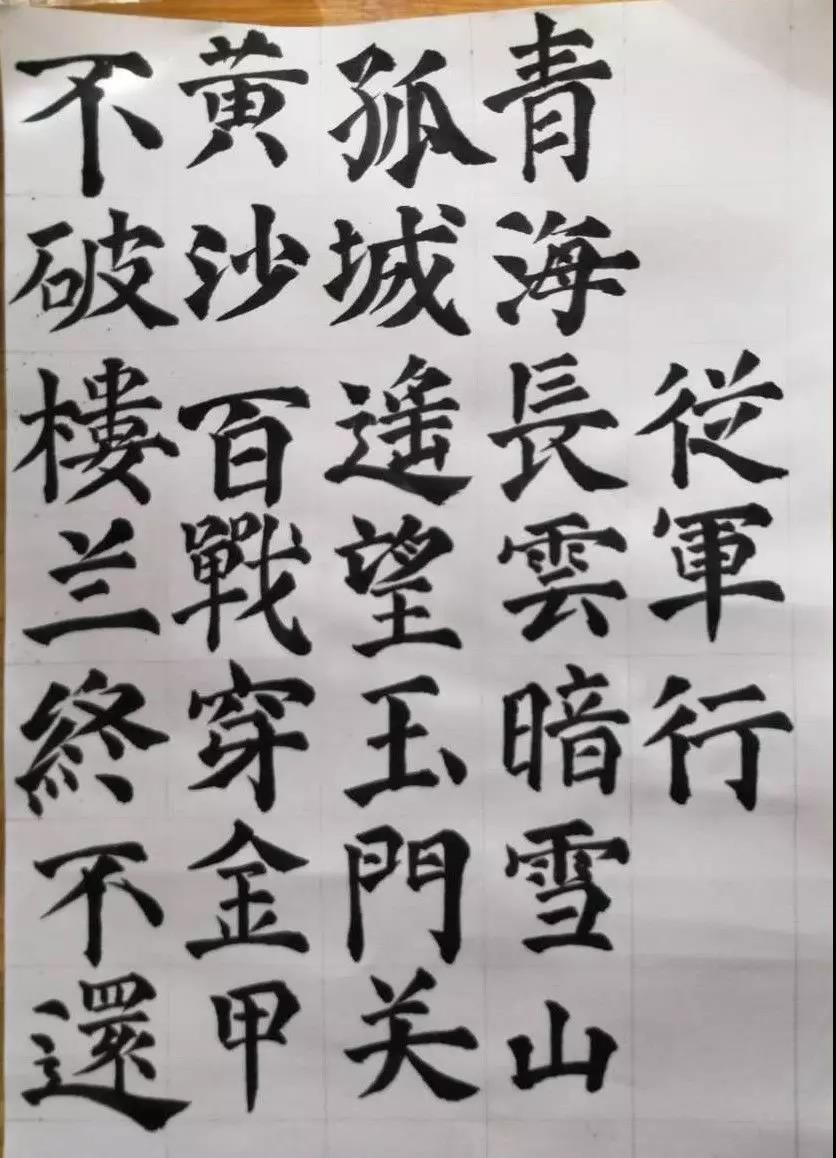 従軍行
青海長雲暗雪山
孤城遥望玉門关
黄沙百戰穿金甲
不破樓兰終不還